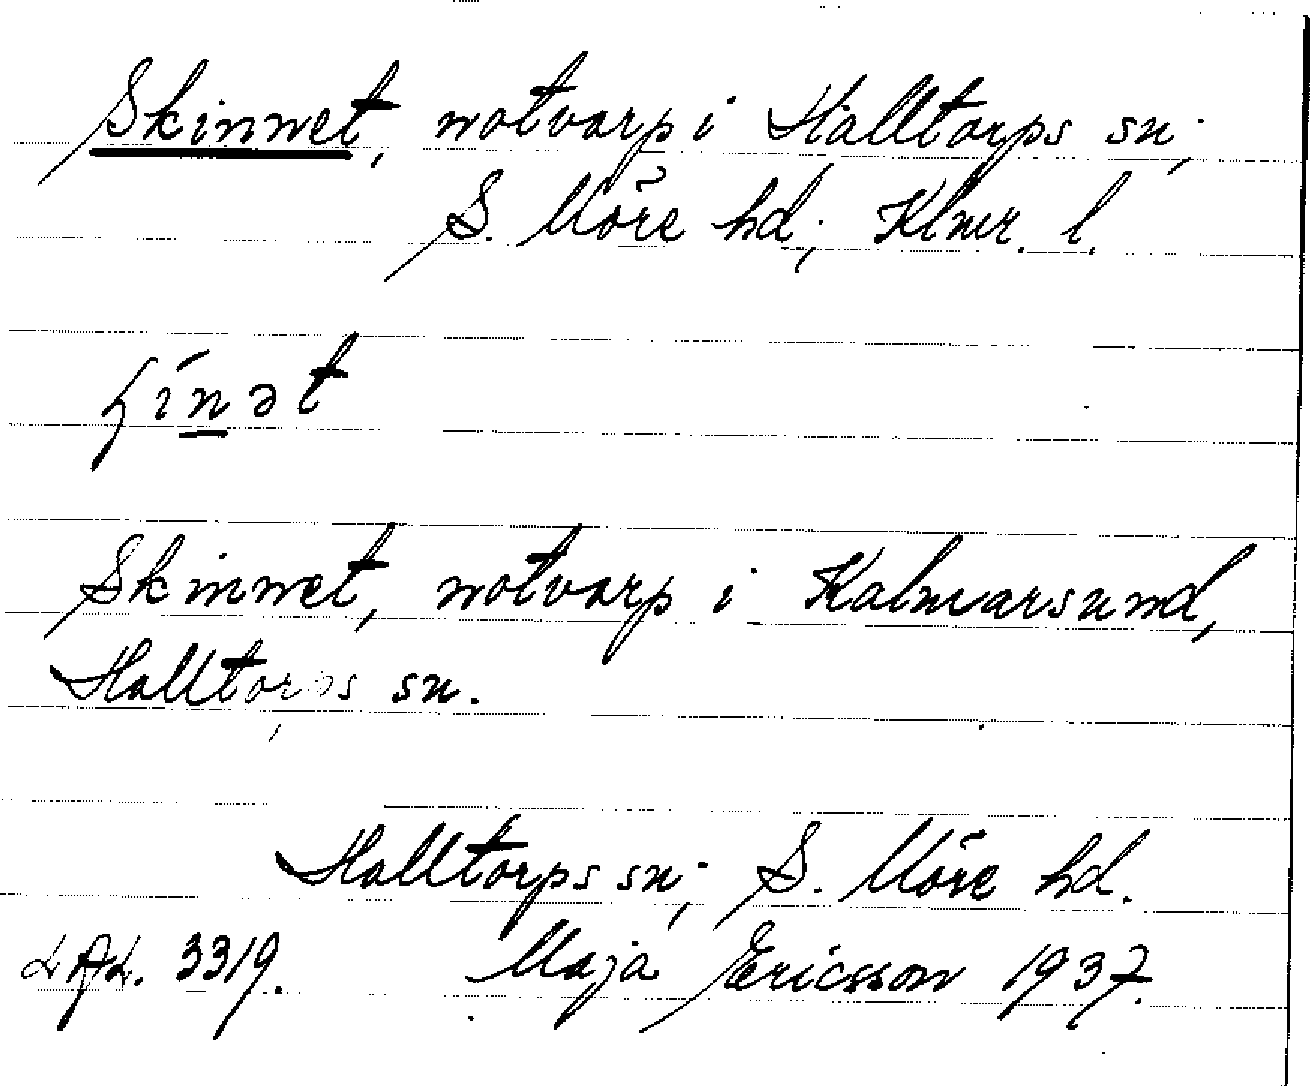 Skinnet, notvarp i Halltorps sn;
S. Möre hd; Klmr. l.
Skinnet, notvarp i Kalmarsund,
Halltorps sn.
Halltorps sn; S. Möre hd.
LAL. 3319. Maja Ericsson 1937.